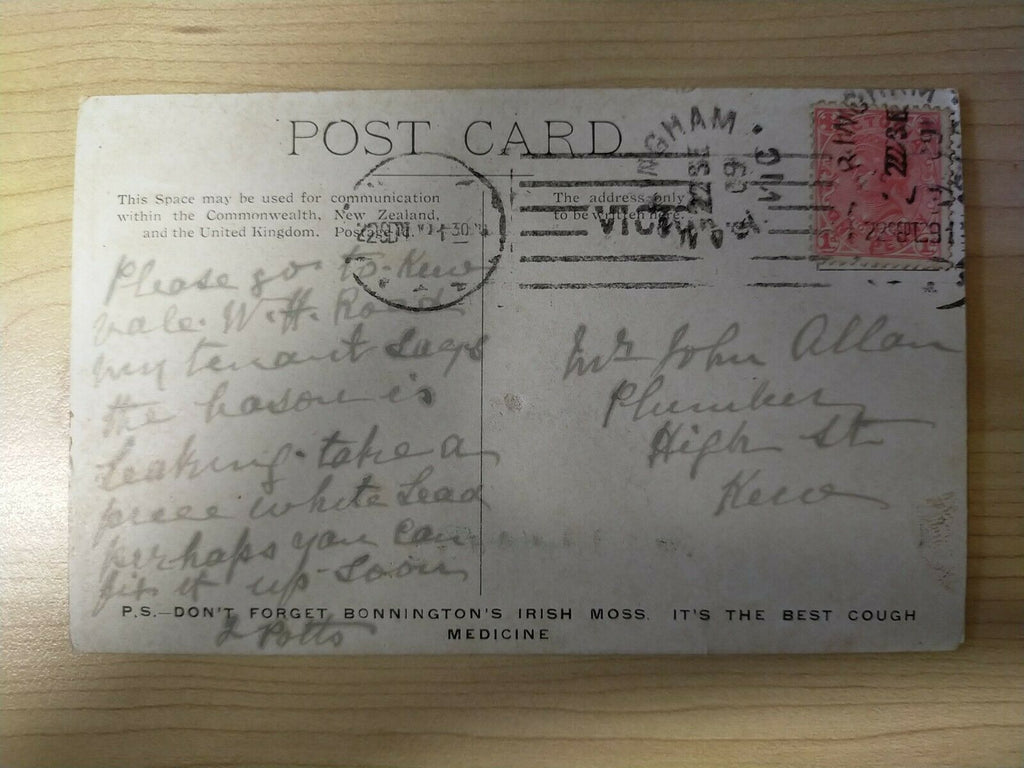 POST CARD
This Space may be used for communication
within the Commonwealth, New Zealand,
and the United Kingdom.
The address only
to be written here.
INGHAM
22 SE
09
VIC
RINGHAM
22 SE
09
Please go to Kew
vale. W.H. Road
my tenant says
the bason is
Leaking. take a
peece white Lead
perhaps you can
fix it up soon
Potts
Mr John Allan
Plumber
High St
Kew
P.S.—DON'T FORGET BONNINGTON'S IRISH MOSS. IT'S THE BEST COUGH
MEDICINE